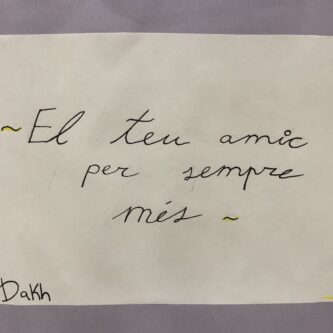 ~El teu amic
per sempre
més ~
Dakh